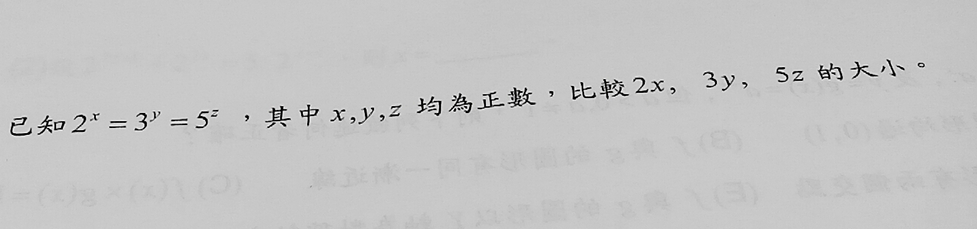 已知 2ˣ = 3ʸ = 5ᶻ ，其中 x,y,z 均為正數，比較 2x， 3y， 5z 的大小。